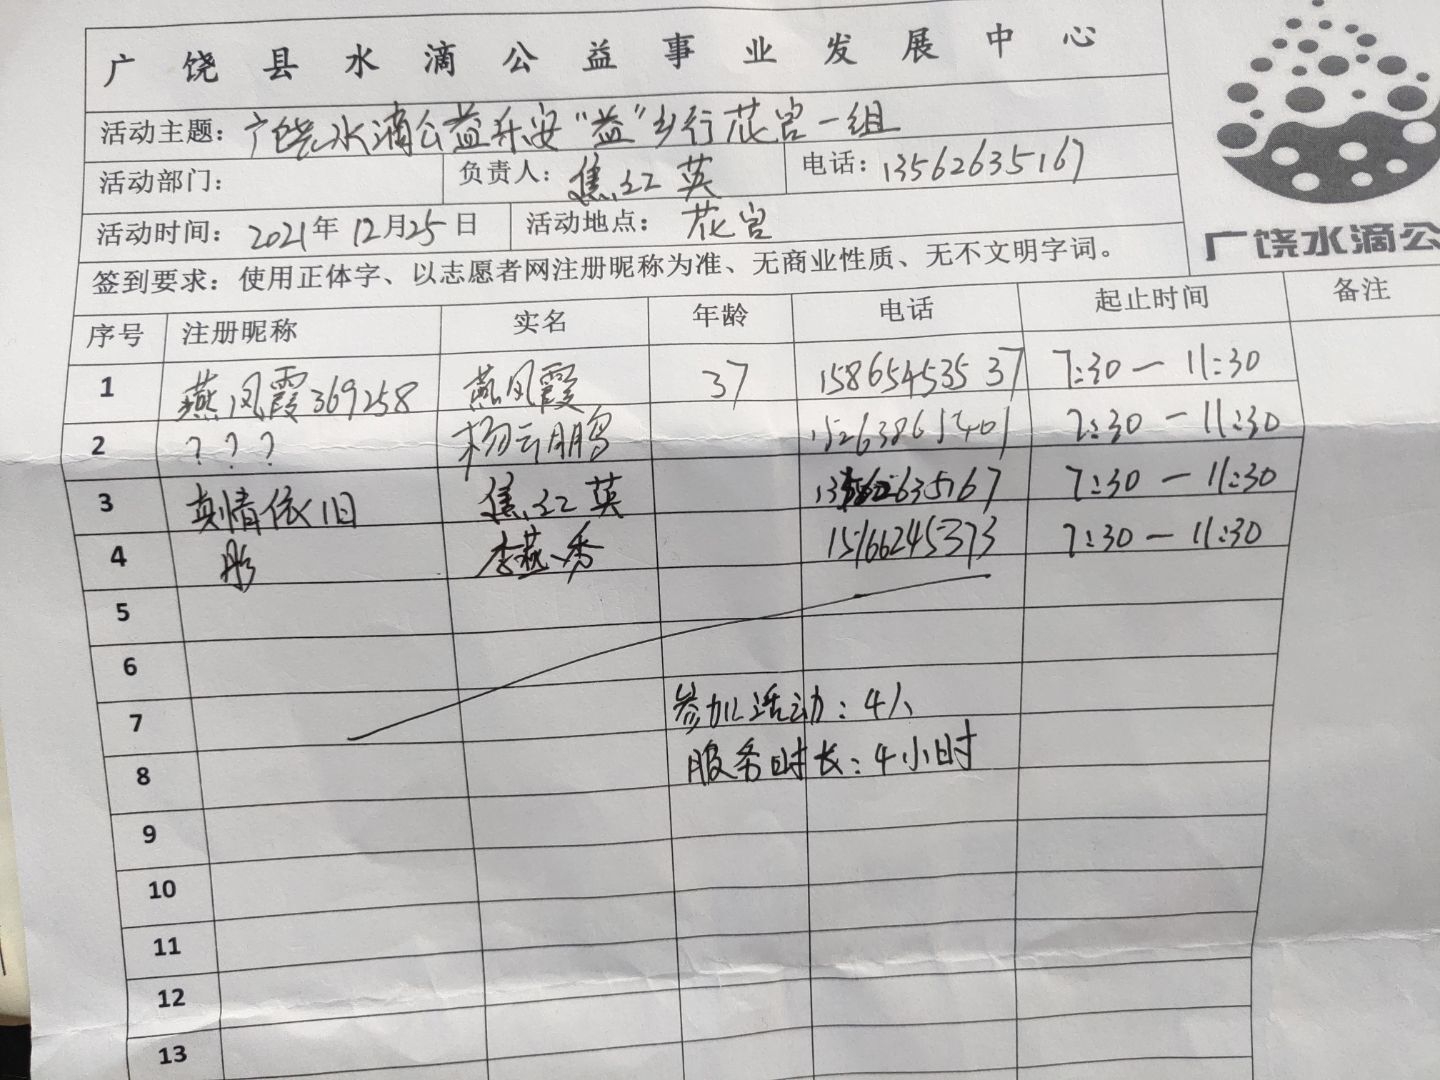 广饶县水滴公益事业发展中心
活动主题：广饶水滴公益乐安“益”乡行花官一组
活动部门： 负责人：焦红英 电话：13562635167
活动时间：2021年12月25日 活动地点：花官
签到要求：使用正体字、以志愿者网注册昵称为准、无商业性质、无不文明字词。
广饶水滴公
序号 注册昵称 实名 年龄 电话 起止时间 备注
1 燕凤霞369258 燕凤霞 37 15865453537 7:30—11:30
2 ？？？ 杨云鹏 15263865401 7:30—11:30
3 真情依旧 焦红英 13562635167 7:30—11:30
4 彤 李燕秀 15166245373 7:30—11:30
5
6
7 参加活动：4人
8 服务时长：4小时
9
10
11
12
13